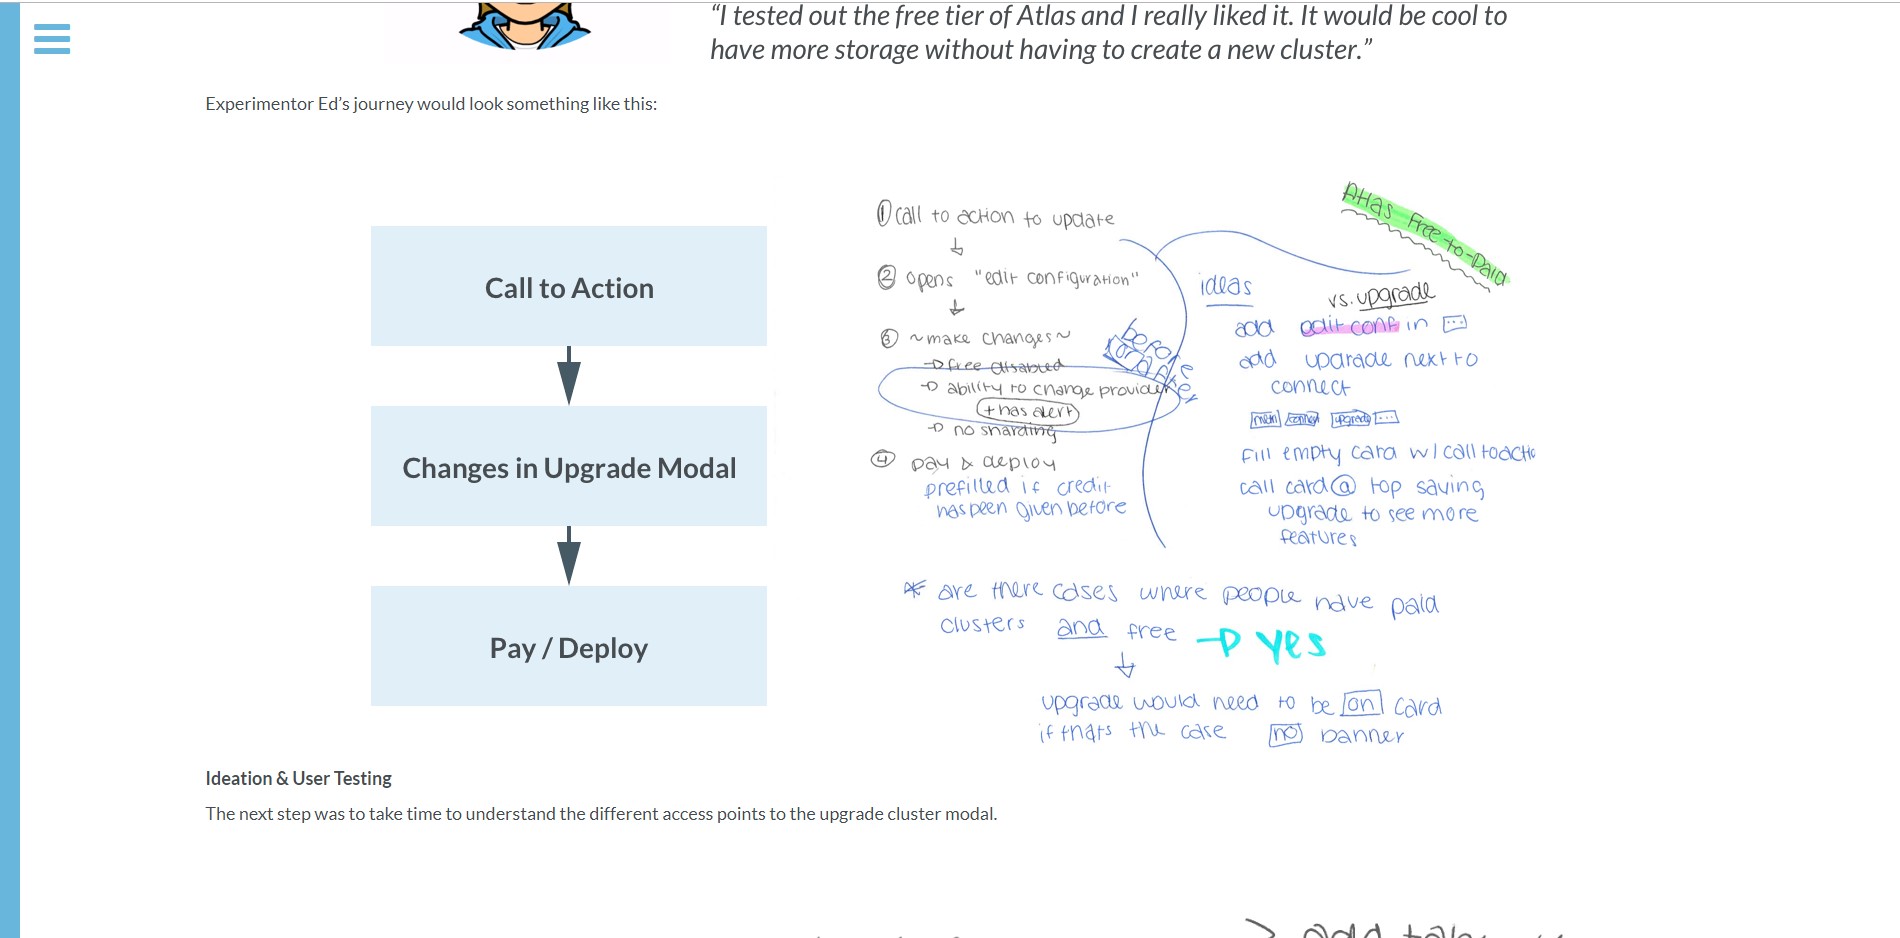 “I tested out the free tier of Atlas and I really liked it. It would be cool to
have more storage without having to create a new cluster.”
Experimentor Ed’s journey would look something like this:
Call to Action
Changes in Upgrade Modal
Pay / Deploy
Atlas Free-to-Paid
① call to action to update
② opens "edit configuration"
③ ~make changes~
free disabled
ability to change provider
+ has alert
no sharding
④ pay & deploy
prefilled if credit
has been given before
before
or after
ideas
vs. upgrade
add edit conf in ...
add upgrade next to
connect
connect upgrade ...
fill empty card w/ call to actio
call card @ top saying
upgrade to see more
features
* are there cases where people have paid
clusters and free → yes
upgrade would need to be on card
if thats the case no banner
Ideation & User Testing
The next step was to take time to understand the different access points to the upgrade cluster modal.